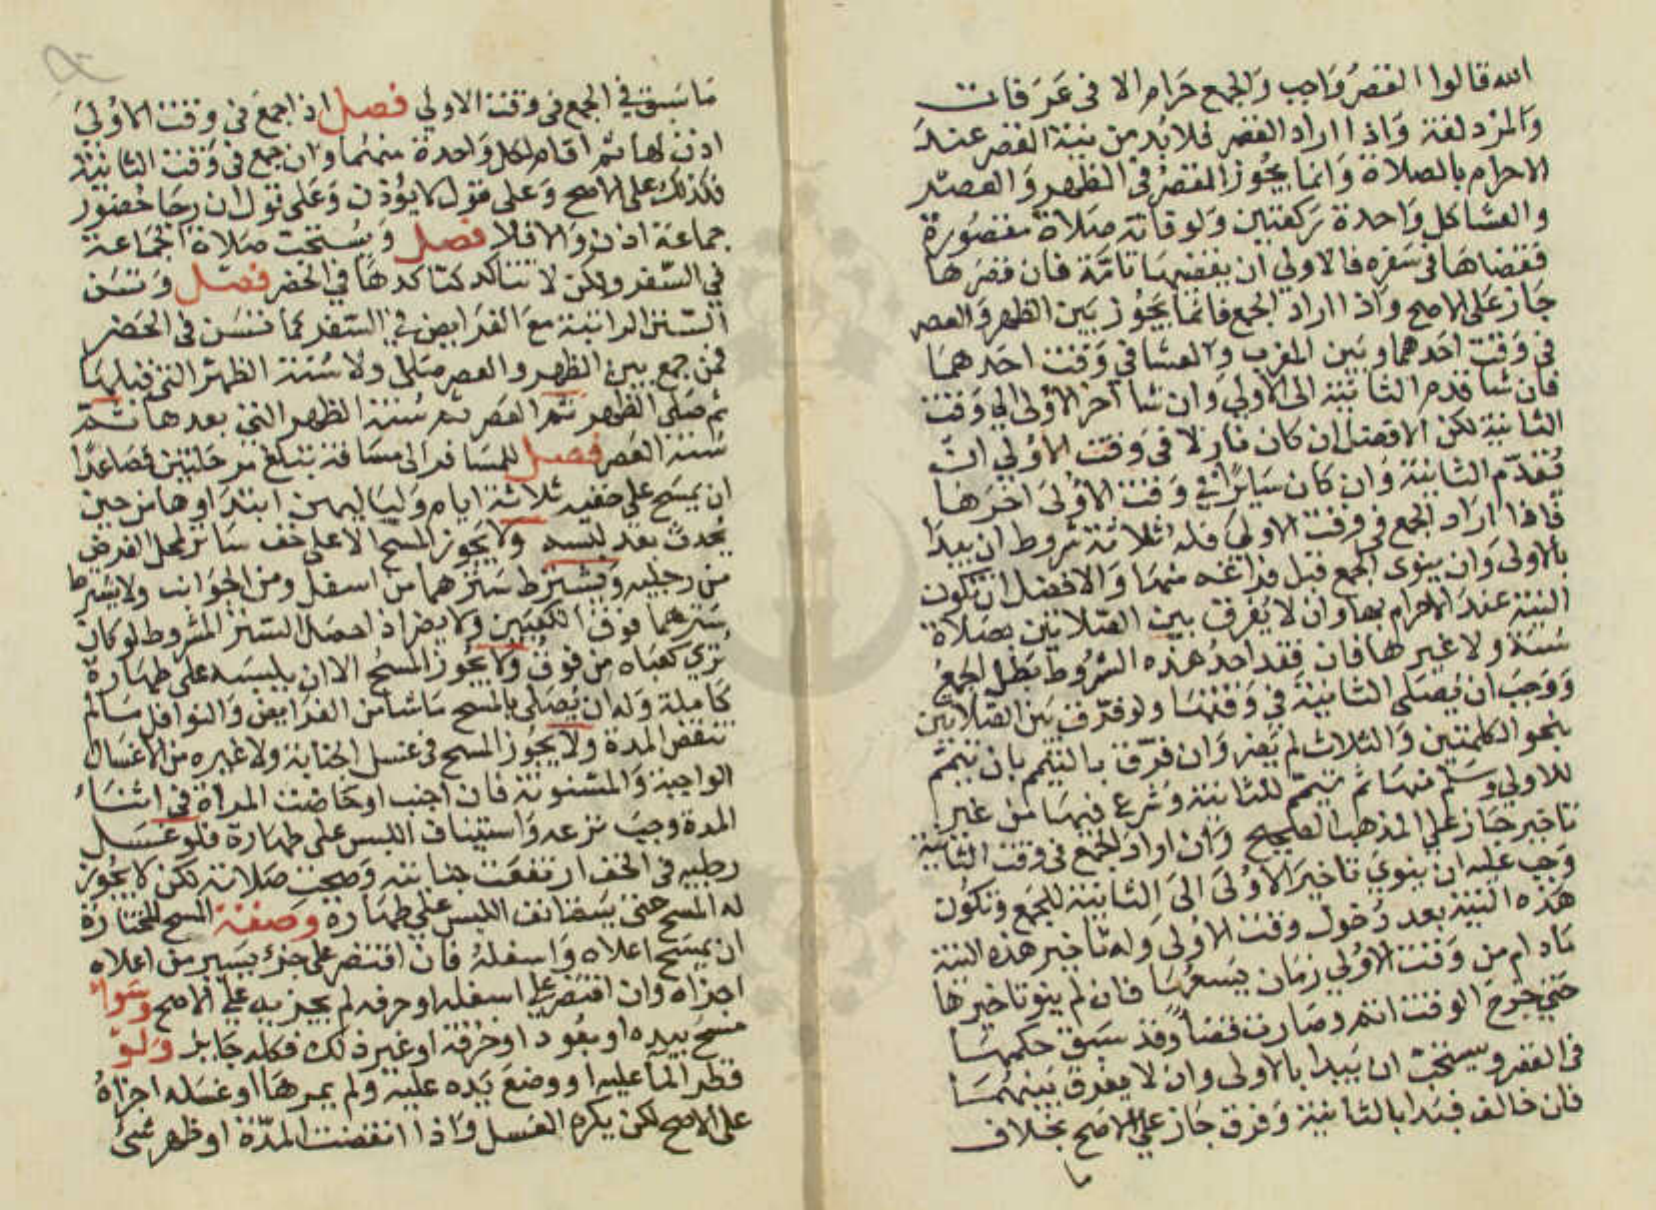 الله قالوا القصر واجب والجمع حرام الا في عرفات
والمزدلفة واذا اراد القصر فلا بد من نية القصر عند
الاحرام بالصلاة وانما يجوز القصر في الظهر والعصر
والعشا كل واحدة ركعتين ولو فاته صلاة مقصورة
فقضاها في سفره فالاولي ان يقضيها تامة فان قصرها
جاز على الاصح واذا اراد الجمع فانما يجوز بين الظهر والعصر
في وقت احدهما وبين المغرب والعشا في وقت احدهما
فان شا قدم الثانية الى الاولي وان شا اخر الاولى الي وقت
الثانية لكن الافضل ان كان نازلا في وقت الاولي ان
تقدم الثانية وان كان سايرا في وقت الاولى اخرها
فاذا اراد الجمع في وقت الاولي فله ثلاثة شروط ان يبدا
بالاولى وان ينوى الجمع قبل فراغه منها والافضل ان تكون
النية عند الاحرام بها وان لا يفرق بين الصلاتين بصلاة
سنة ولا غيرها فان فقد احد هذه الشروط بطل الجمع
ووجب ان يصلى الثانية في وقتها ولو فرق بين الصلاتين
بنحو الكلمتين والثلاث لم يضر وان فرق بالتيمم بان تيمم
للاولي وسلم منها ثم تيمم للثانية وشرع فيها من غير
تاخير جاز علي المذهب الصحيح وان اراد الجمع في وقت الثانية
وجب عليه ان ينوي تاخير الاولى الى الثانية للجمع وتكون
هذه النية بعد دخول وقت الاولى وله تاخير هذه النية
مادام من وقت الاولي زمان يسعها فان لم ينو تاخيرها
حتي خرج الوقت اثم وصارت قضا وقد سبق حكمها
في القصر ويستحب ان يبدا بالاولى وان لا يفرق بينهما
فان خالف فبدا بالثانية وفرق جاز علي الاصح بخلاف
ما
ما سبق في الجمع في وقت الاولي فصل اذا جمع في وقت الاولي
اذن لها ثم اقام لكل واحدة منهما وان جمع في وقت الثانية
فكذلك على الاصح وعلى قول لا يؤذن وعلى قول ان رجا حضور
جماعة اذن والا فلا فصل ويستحب صلاة الجماعة
في السفر ولكن لا تتاكد كتاكدها في الحضر فصل وتسن
السنن الراتبة مع الفرايض في السفر كما تسن في الحضر
فمن جمع بين الظهر والعصر صلى ولا سنة الظهر التي قبلها
ثم صلى الظهر ثم العصر ثم سنة الظهر التي بعدها ثم
سنة العصر فصل للمسافر الى مسافة تبلغ مرحلتين فصاعدا
ان يمسح على خفيه ثلاثة ايام ولياليهن ابتداوها من حين
يحدث بعد لبسه ولا يجوز المسح الا على خف ساتر لمحل الفرض
من رجليه ويشترط سترهما من اسفل ومن الجوانب ولا يشترط
سترهما فوق الكعبين ولا يضر اذا حصل الستر المشروط لو كان
تري كعباه من فوق ولا يجوز المسح الا ان يلبسه على طهارة
كاملة وله ان يصلي بالمسح ماشا من الفرايض والنوافل ما لم
تنقض المدة ولا يجوز المسح في غسل الجنابة ولا غيره من الاغسال
الواجبة والمسنونة فان اجنب او حاضت المراة في اثناء
المدة وجب نزعه واستيناف اللبس على طهارة فلو غسل
رجليه في الخف ارتفعت جنابته وصحت صلاته لكن لا يجوز
له المسح حتى يستانف اللبس علي طهارة وصفة المسح المختارة
ان يمسح اعلاه واسفله فان اقتصر على جزء يسير من اعلاه
اجزاه وان اقتصر علي اسفله او حرفه لم يجزيه علي الاصح وسواء
مسح بيده او بعود او خرقة او غير ذلك فكله جايز ولو
قطر الما عليه او وضع يده عليه ولم يمرها او غسله اجزاه
على الاصح لكن يكره الغسل واذا انقضت المدة او ظهر شئ